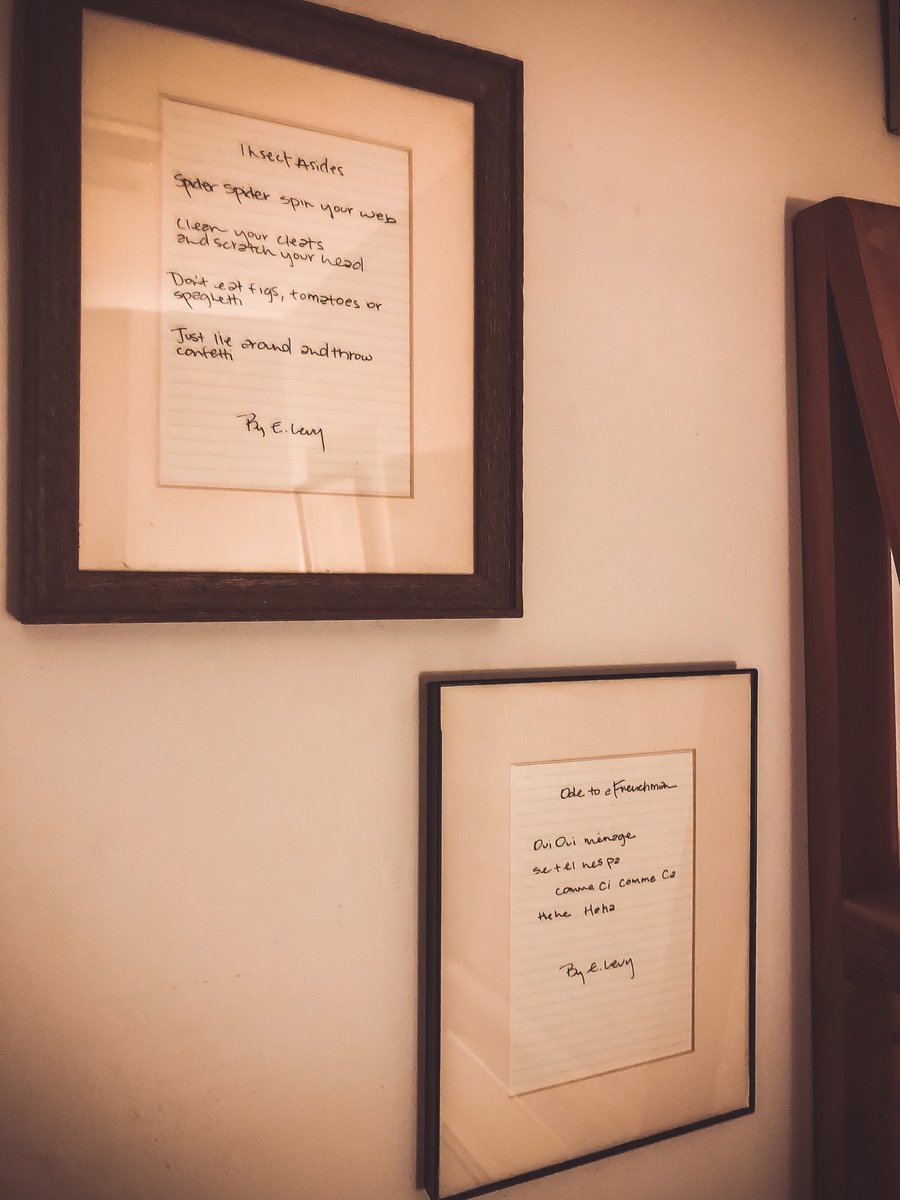 Insect Asides
Spider Spider spin your web
Clean your cleats
and scratch your head
Don't eat figs, tomatoes or
spaghetti
Just lie around and throw
confetti
By E. Levy
Ode to a Frenchman
Oui Oui ménage
se tel nespa
comme Ci comme Ca
Hehe Haha
By E. Levy